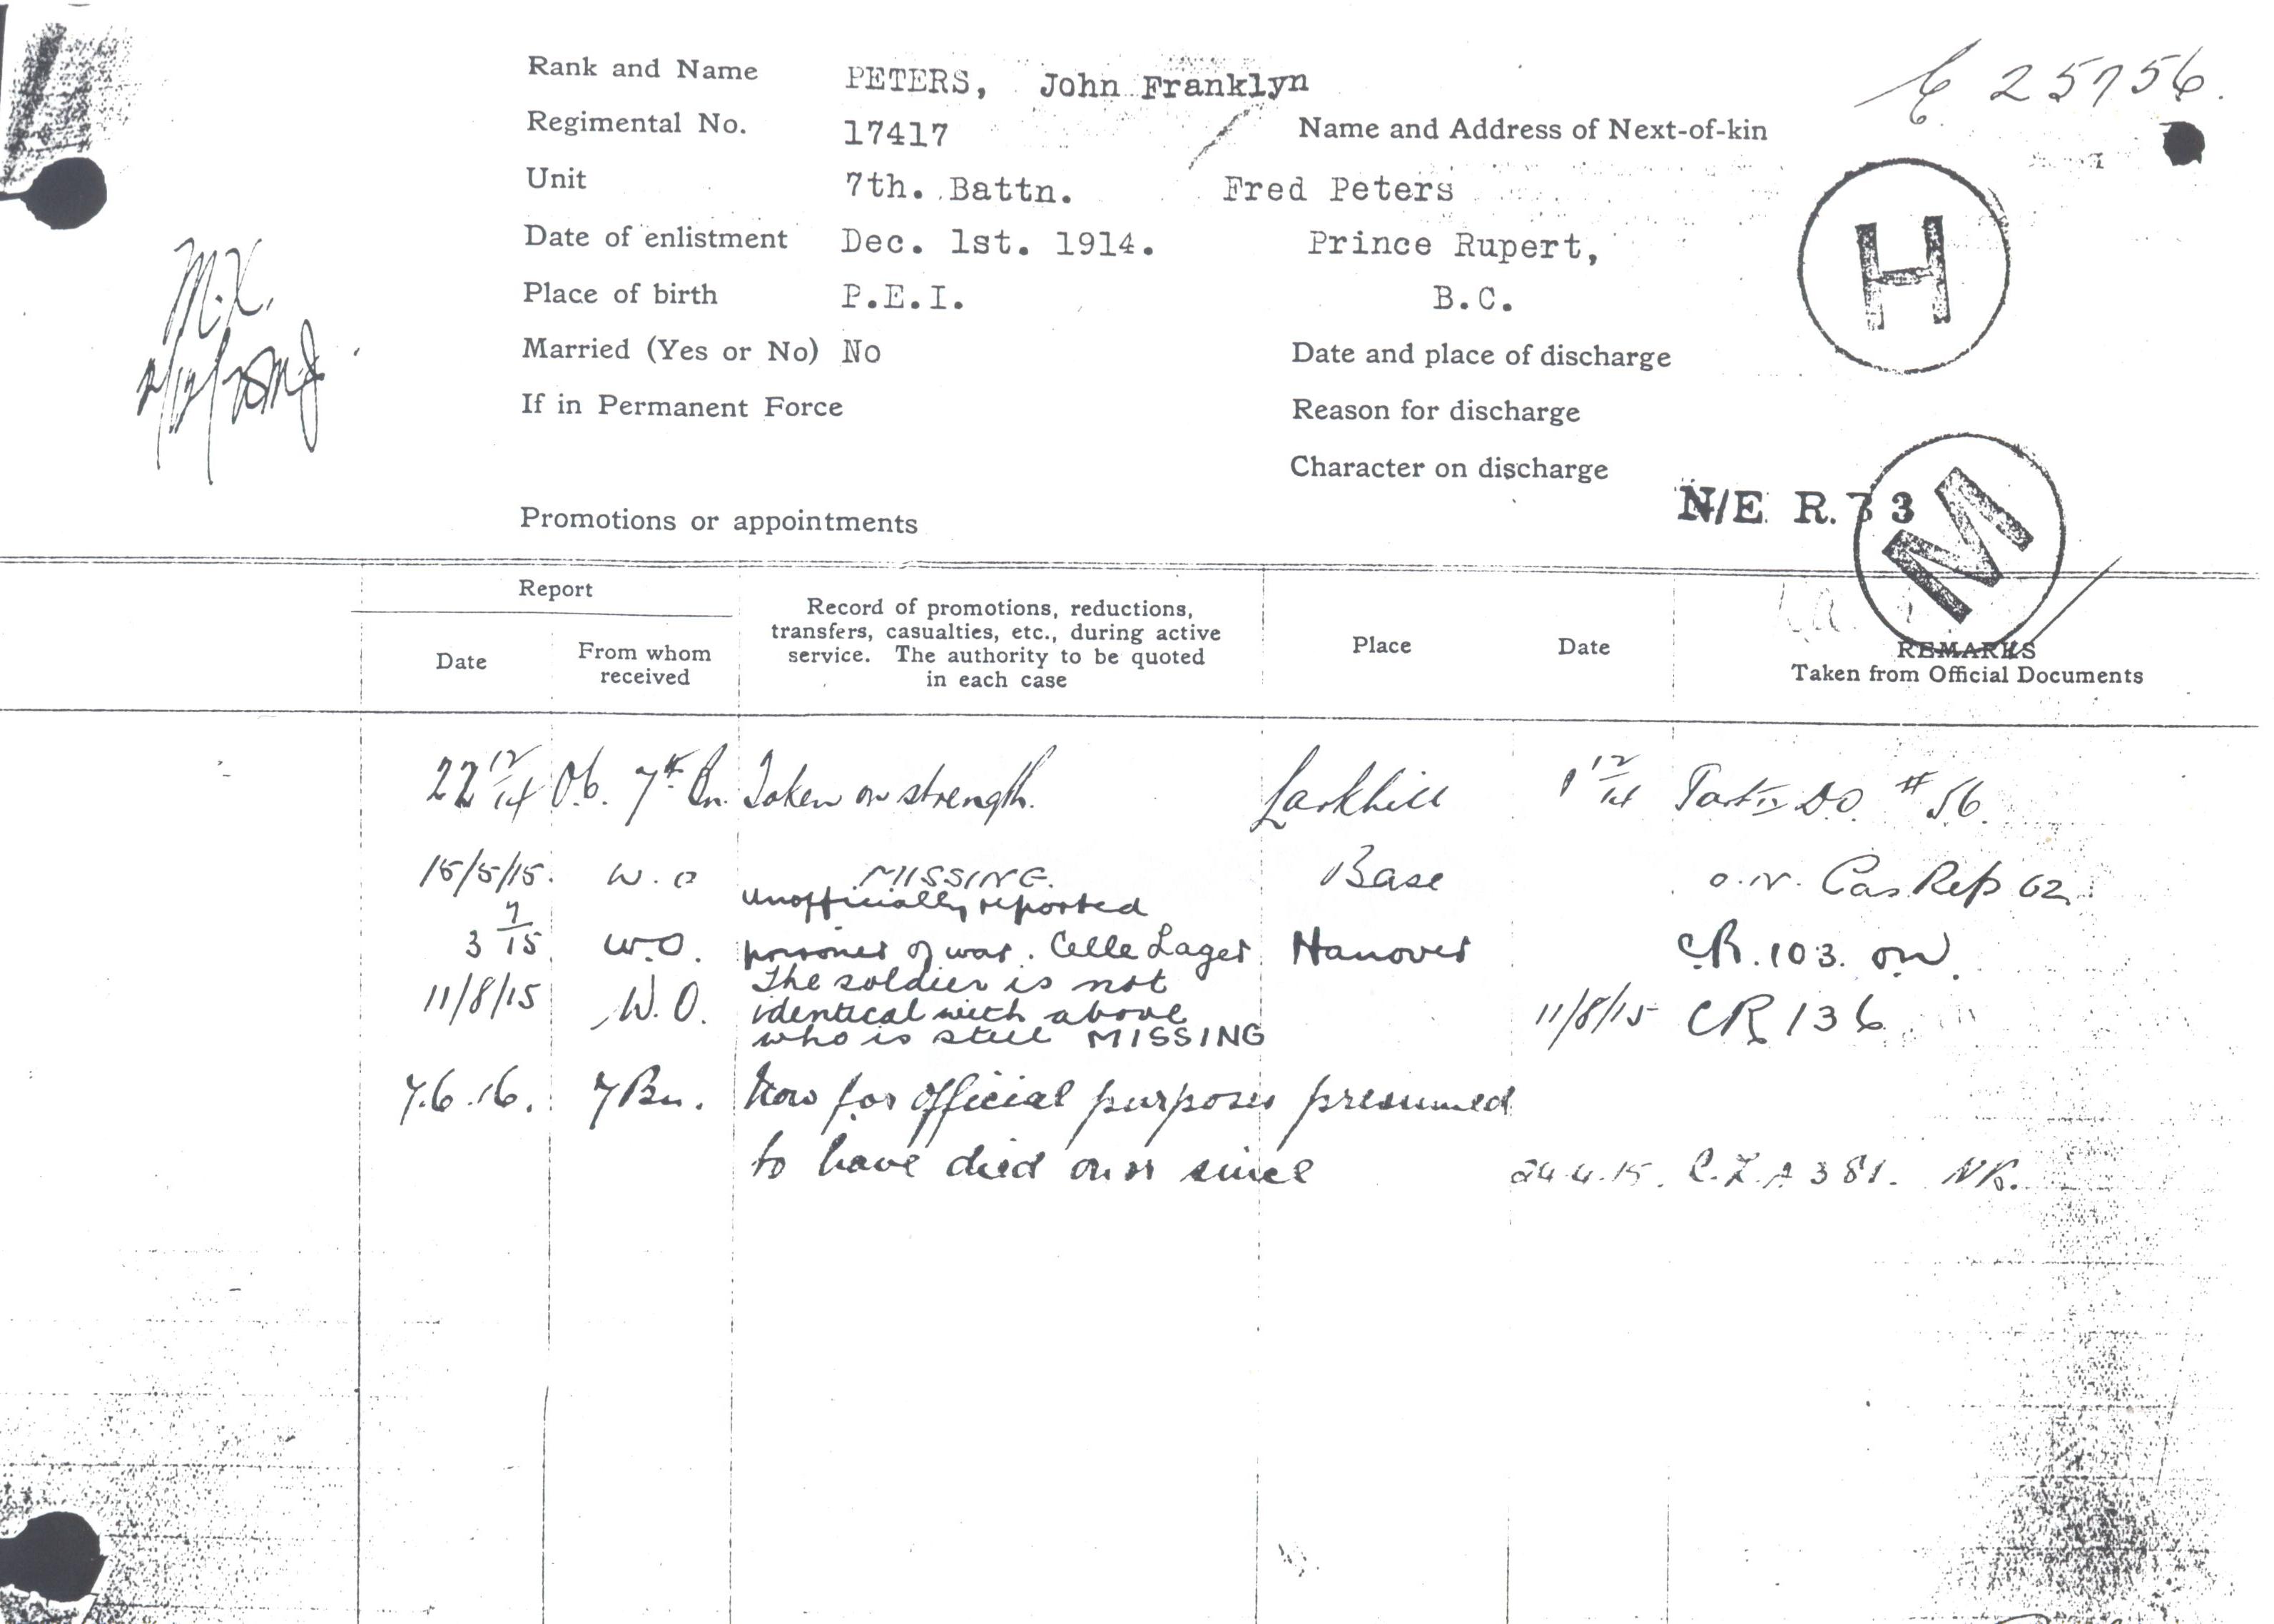 Rank and Name PETERS, John Franklyn
25756.
Regimental No. 17417
Name and Address of Next-of-kin
Unit 7th. Battn.
Fred Peters
Date of enlistment Dec. 1st. 1914.
Prince Rupert,
H
Place of birth P.E.I.
B.C.
Married (Yes or No) No
Date and place of discharge
If in Permanent Force
Reason for discharge
Character on discharge
N/E R. 33
M
Promotions or appointments
Report
Date
From whom
received
Record of promotions, reductions,
transfers, casualties, etc., during active
service. The authority to be quoted
in each case
Place
Date
REMARKS
Taken from Official Documents
22 12/14 7th Bn. Taken on strength. Larkhill 1 12/14 Part II D.O. # 56.
15/5/15. W.O MISSING. Base Cas Rep 62
unofficially reported
3 7/15 W.O. prisoner of war. Celle Lager Hanover CR.103.
11/8/15 W.O. The soldier is not
identical with above 11/8/15 CR 136
who is still MISSING
7.6.16. 7 Bn. Now for official purposes presumed
to have died on or since 24.4.15. 381.